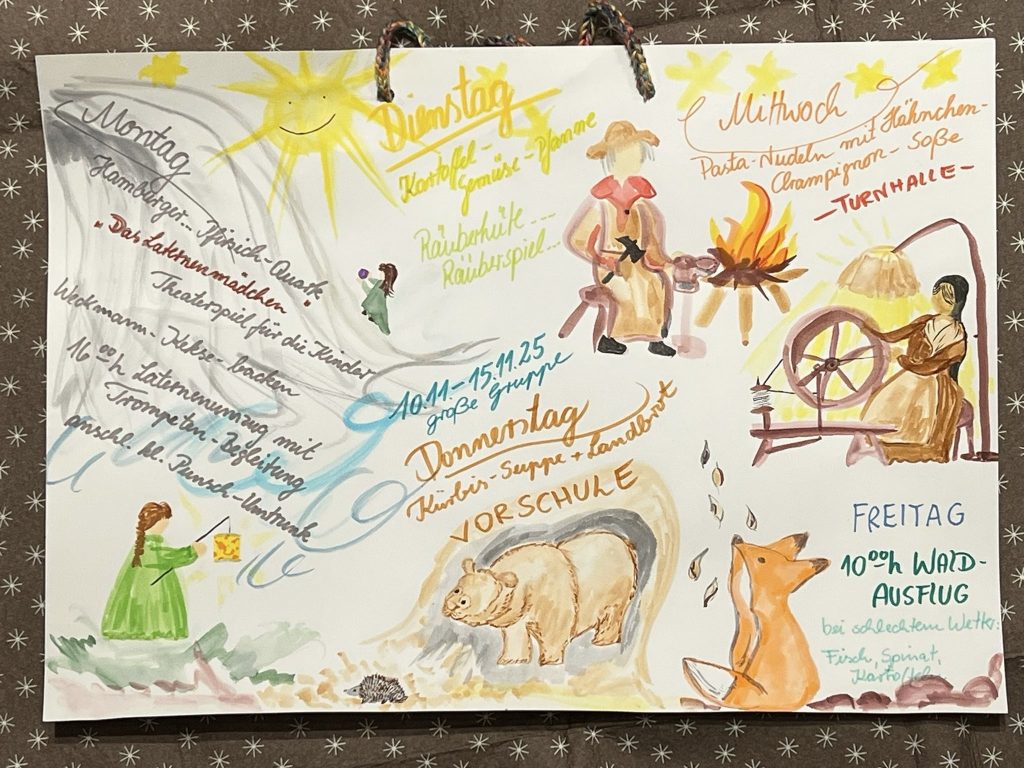 Montag
Hamburger... Pfirsich-Quark
"Das Laternenmädchen"
Theaterspiel für die Kinder
Weckmann-Kekse-backen
16⁰⁰h Laternenumzug mit
Trompeten-Begleitung
anschl. kl. Punsch-Umtrunk
Dienstag
Kartoffel-
Gemüse-Pfanne
Räuberhüte....
Räuberspiel...
Mittwoch
Pasta-Nudeln mit Hähnchen-
Champignon-Soße
-TURNHALLE-
10.11-15.11.25
große Gruppe
Donnerstag
Kürbis-Suppe + Landbrot
VORSCHULE
FREITAG
10⁰⁰h WALD-
AUSFLUG
bei schlechtem Wetter:
Fisch, Spinat,
Kartoffeln